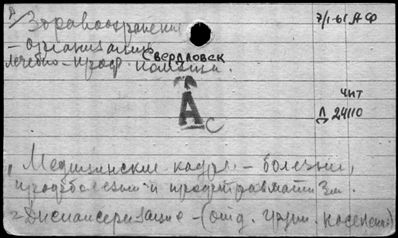 Здравоохранение
7/I-61 АФ
- организация
Свердловск
лечебно-проф. помощи.
А
С
ЧИТ
Д 24110
1 Медицинские кадры - болезни,
профболезни и профтравматизм.
2 Диспансеризация - (отд. групп. населения)